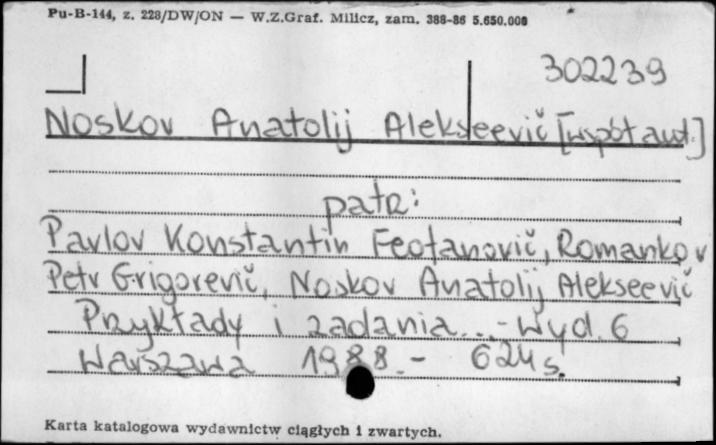 Pu-B-144, z. 228/DW/ON — W.Z.Graf. Milicz, zam. 388-86 5.650.000
302239
Noskov Anatolij Alekseevič [współaut.]
patrz:
Pavlov Konstantin Feofanovič, Romankov
Petr Grigorevič, Noskov Anatolij Alekseevič
Przykłady i zadania... - Wyd. 6
Warszawa 1988. - 624 s.
Karta katalogowa wydawnictw ciągłych i zwartych.